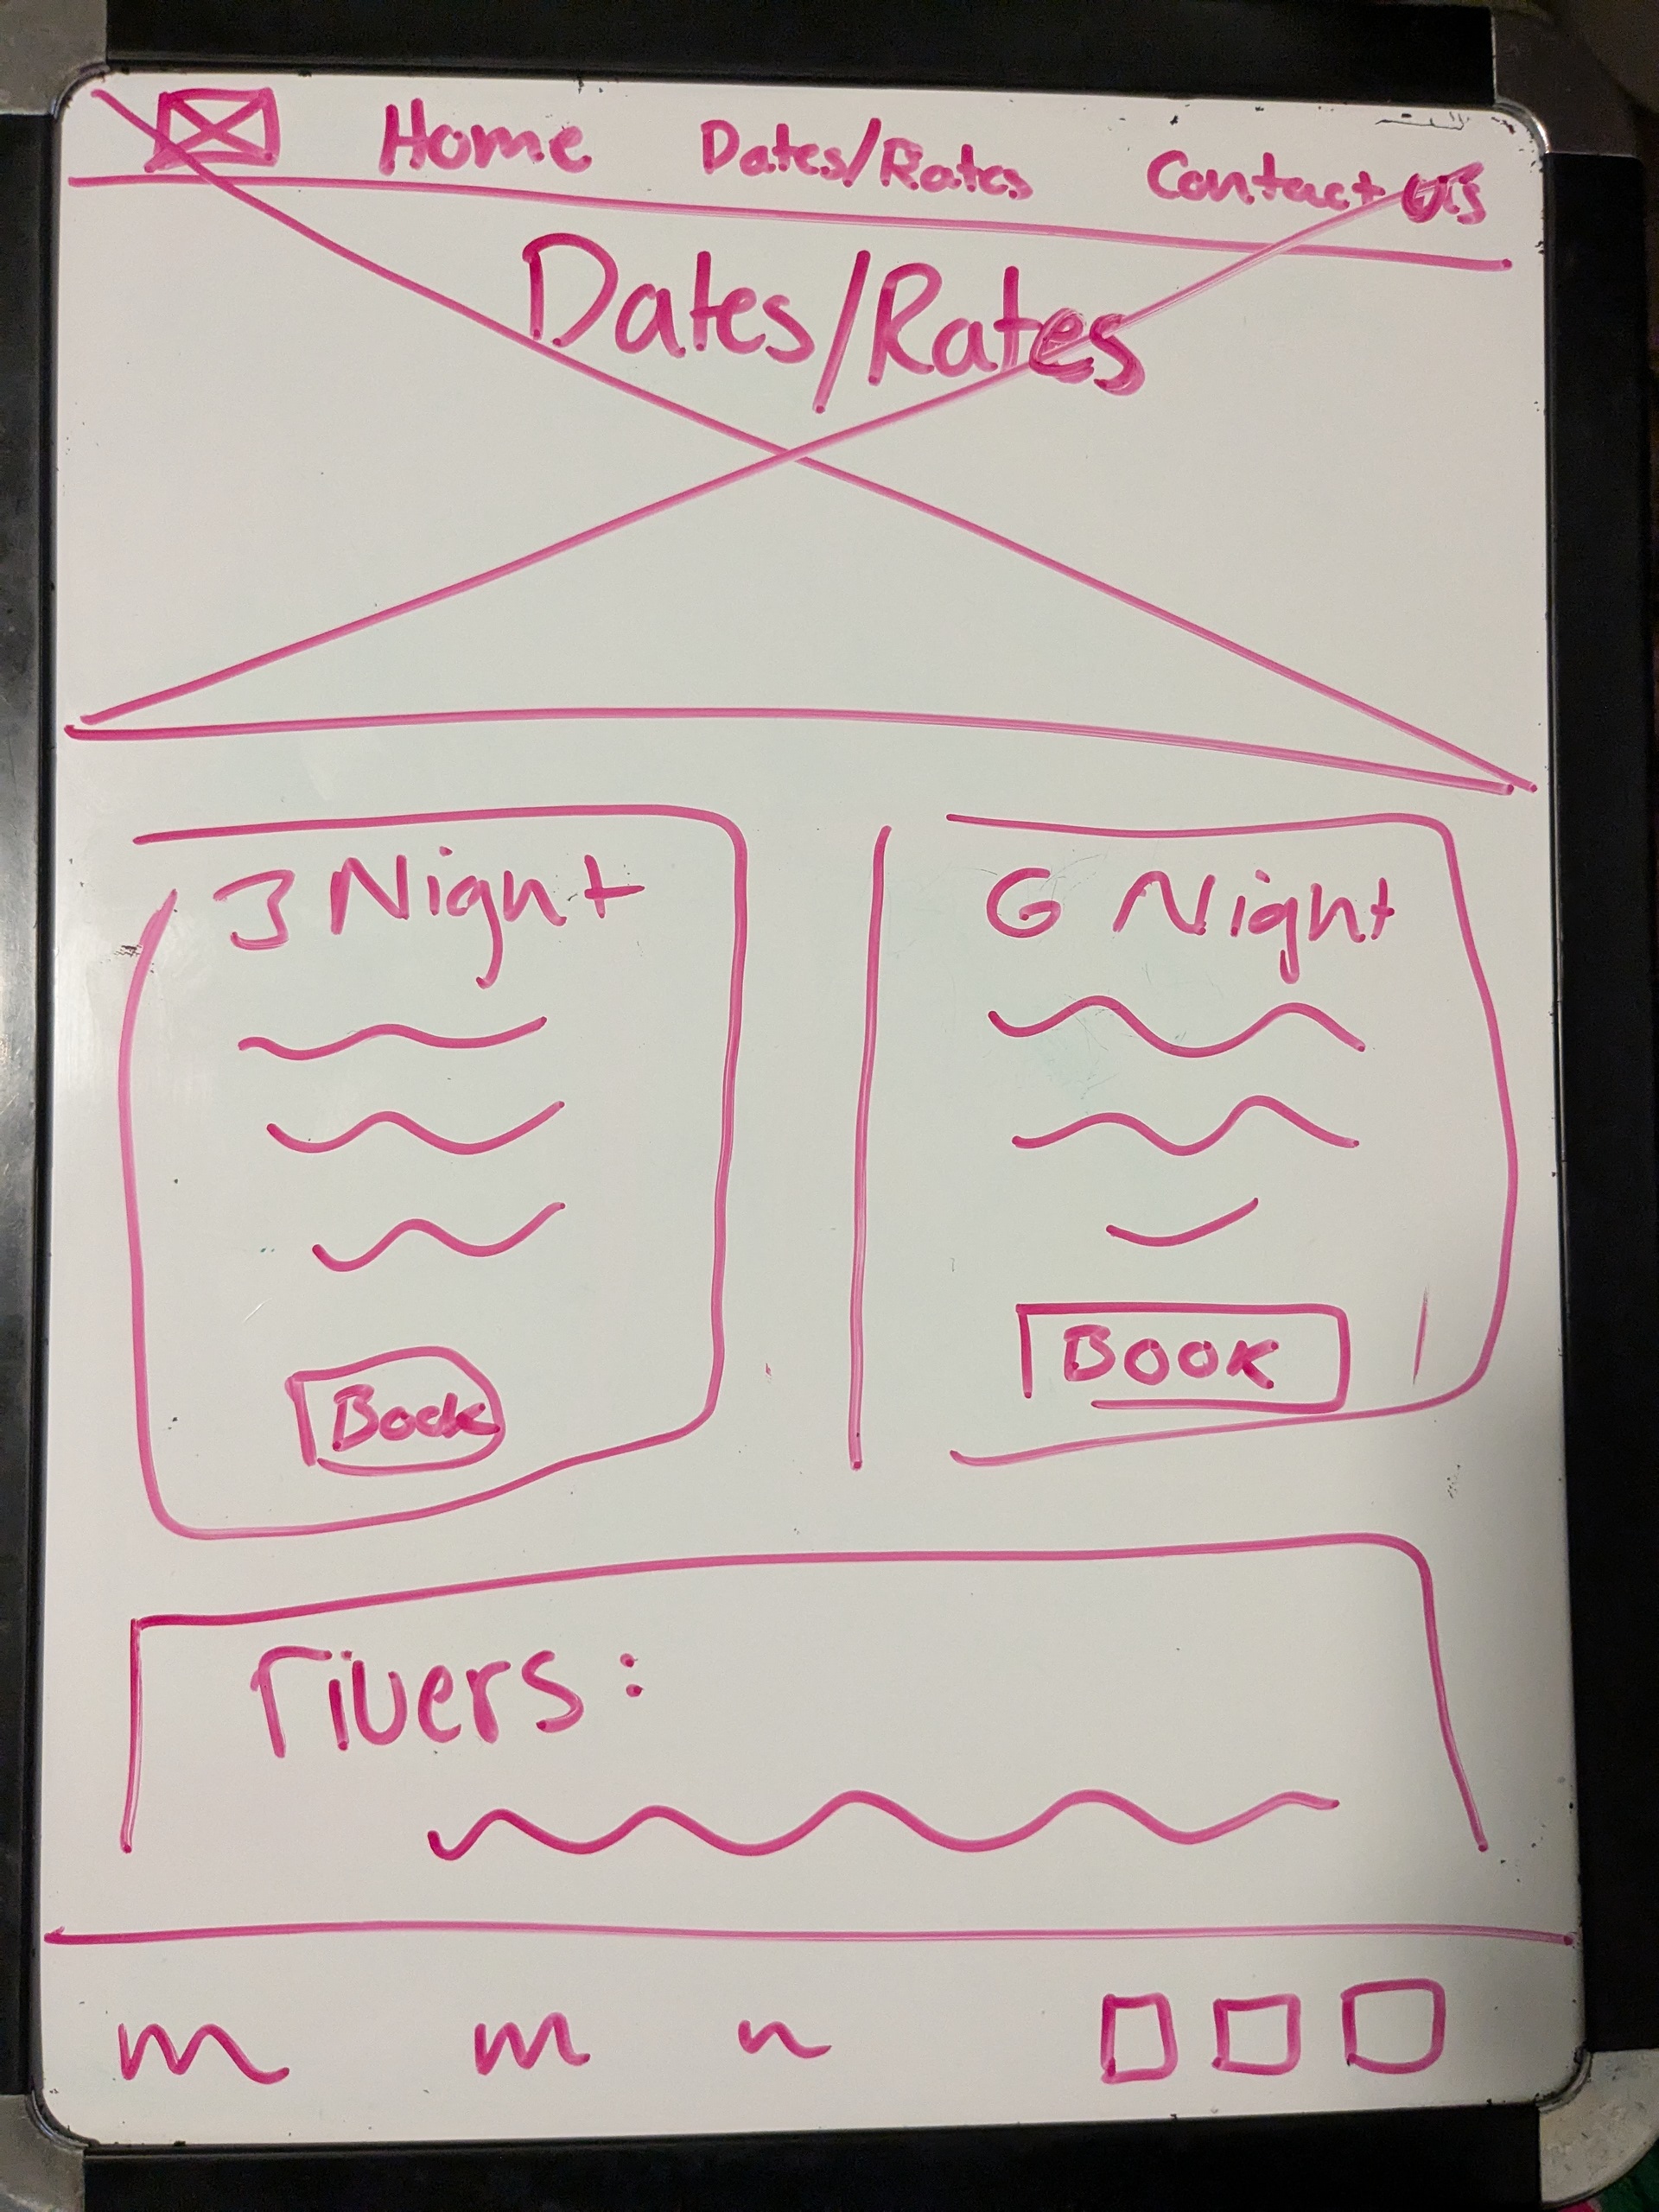 Home Dates/Rates Contact Us
Dates/Rates
3 Night
6 Night
Book
BOOK
rivers: